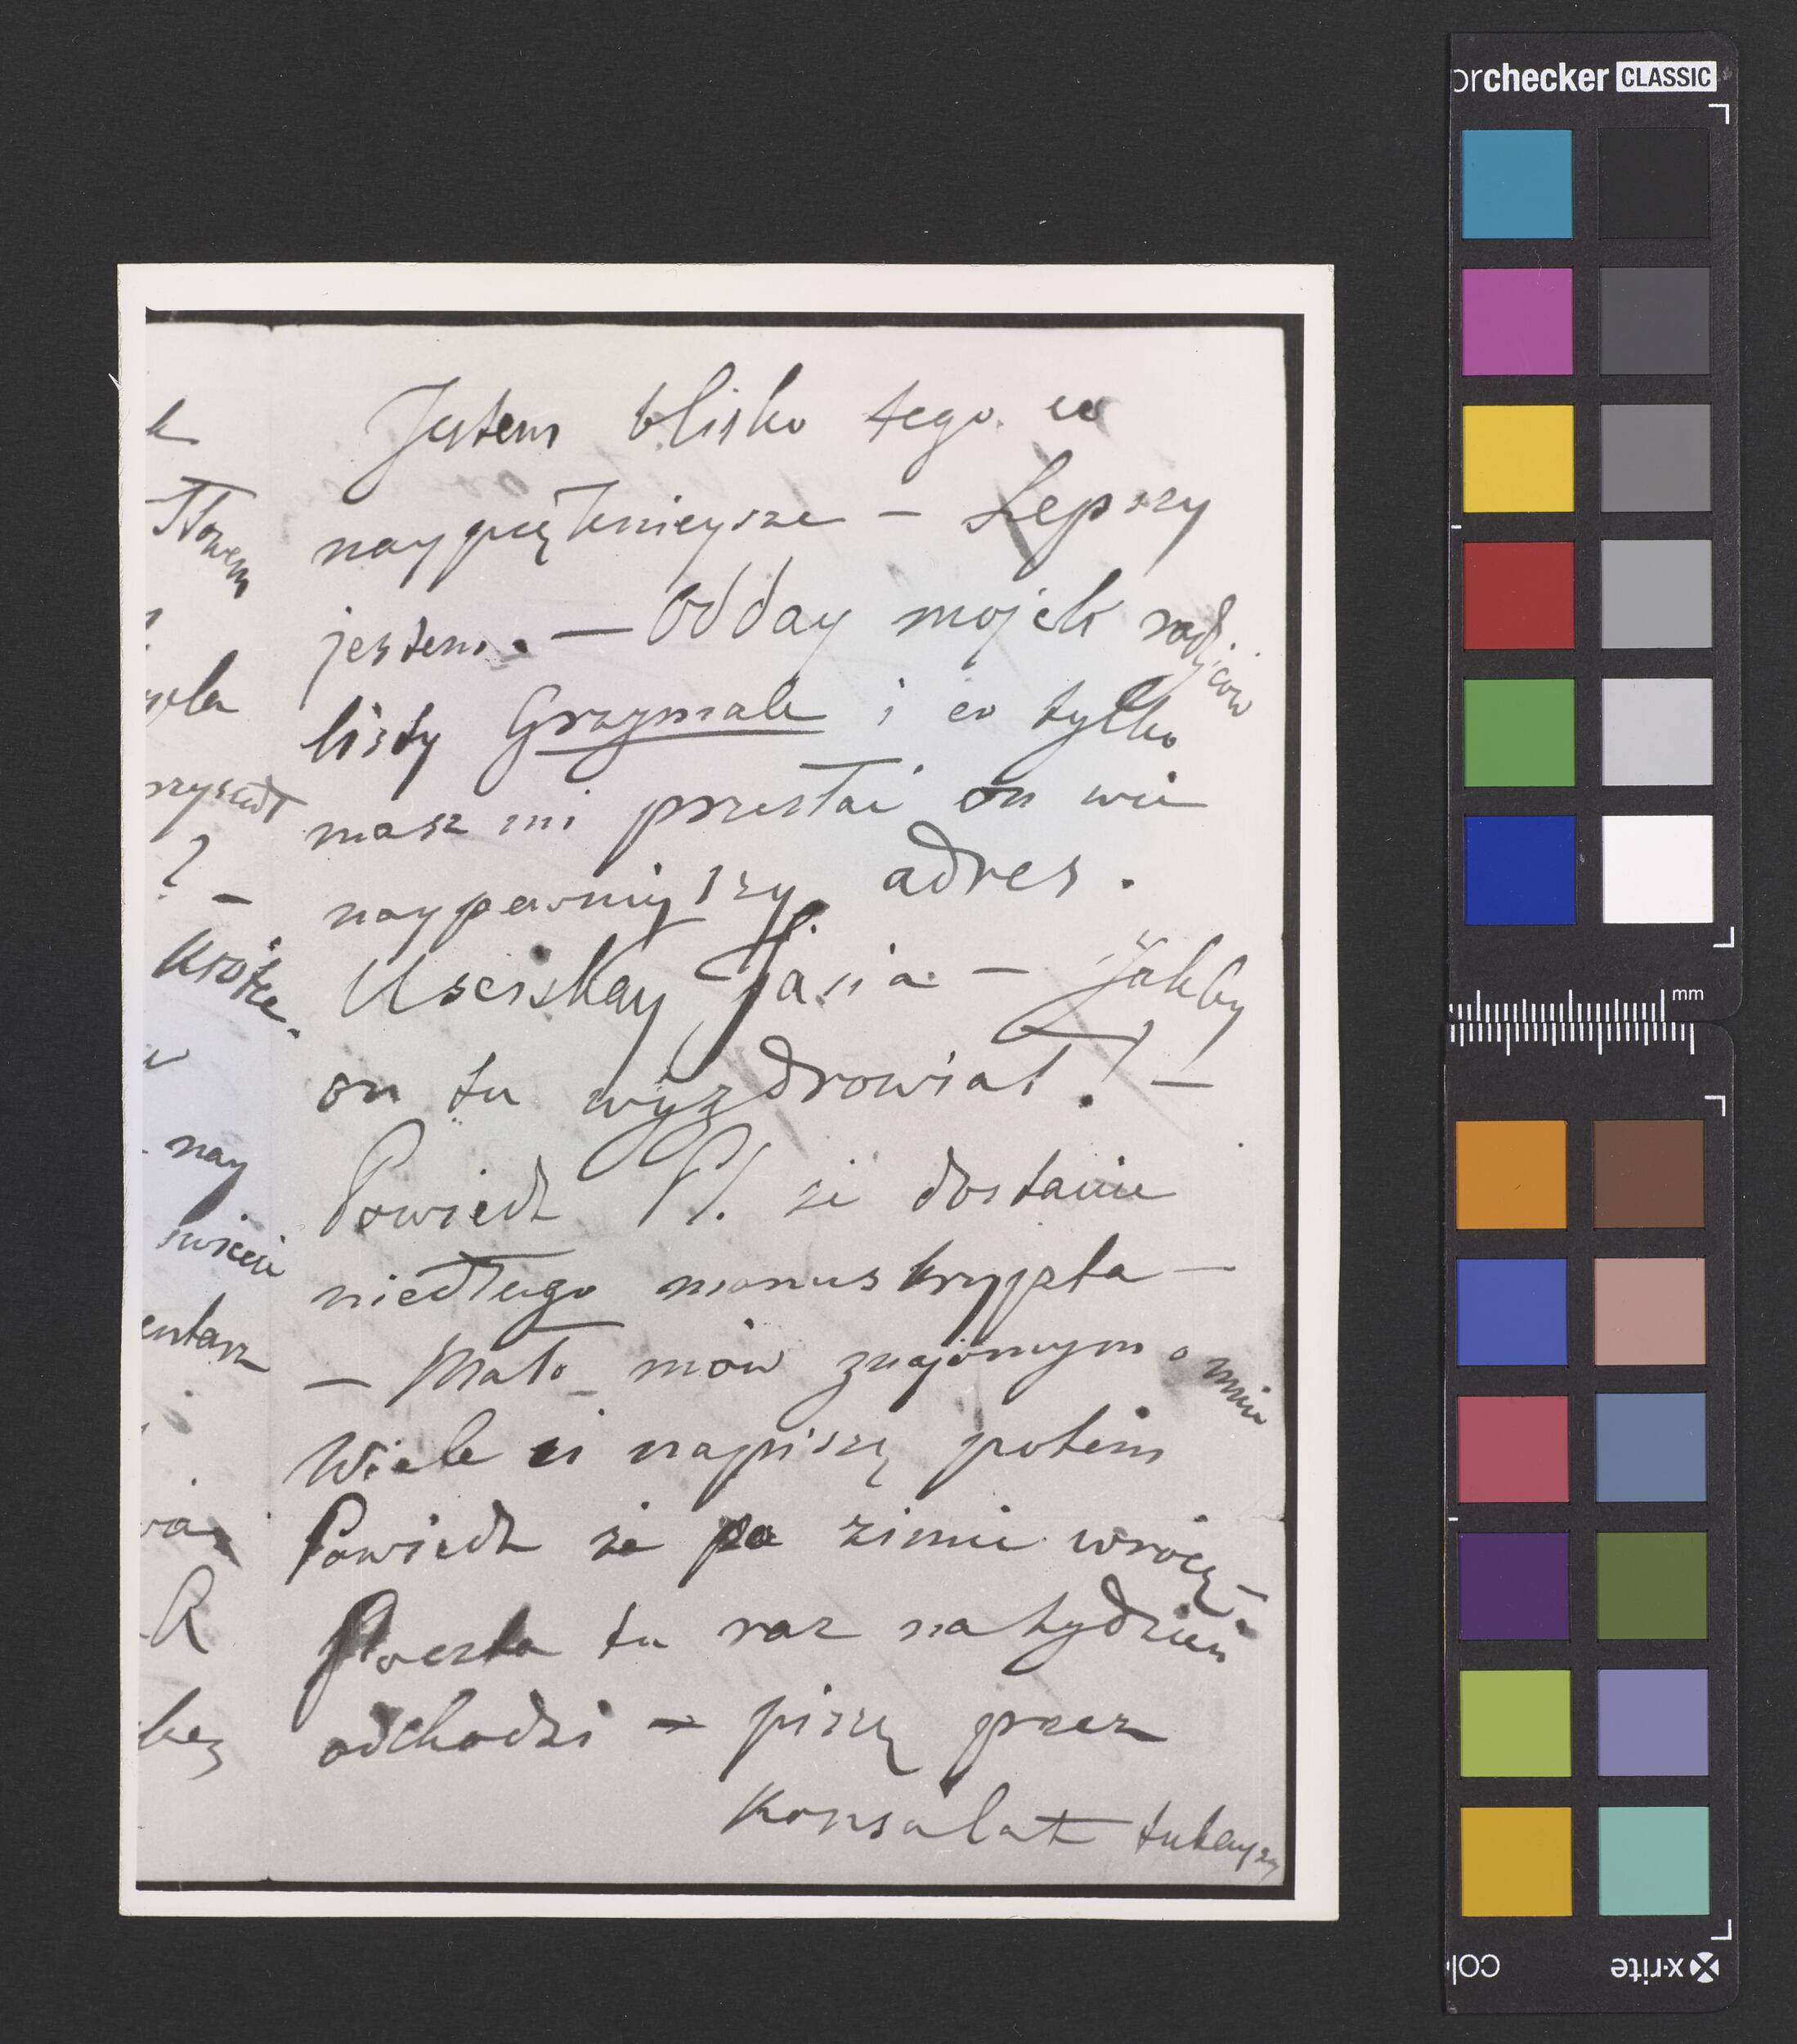 k
słowem
yła
rzyszedł
? —
krótce.
w
nay
świecie
entarz
R
bez
Jestem blisko tego co
naypięknieysze — Lepszy
jestem. — Odday mojch rodziców
listy Grzymale i co tylko
masz mi przesłać on wie
naypewnieyszy adres.
Usciskay Jasia — Jakby
on tu wyzdrowiał! —
Powiedz Pl. że dostanie
niedługo manuskrypta —
— Mało mów znajomym o mnie
Wiele ci napiszę potem
Powiedz że po zimie wrócę —
Poczta tu raz na tydzień
odchodzi — piszę przez
Konsulat tuteyszy
orchecker CLASSIC
mm
x·rite
col